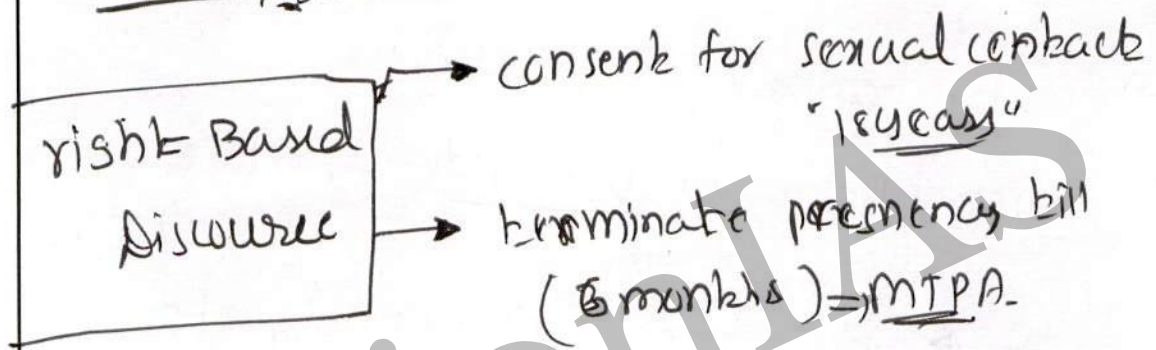 right Based
Discourse
consent for sexual contact
"18 years"
terminate pregnancy till
(6 months) => MTPA.
onIAS